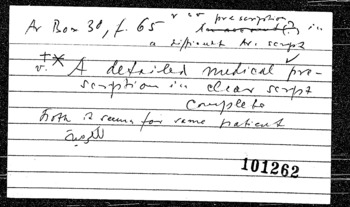 Ar Box 30, f. 65 r
prescription
in
a difficult Ar. script
v. A detailed medical pre-
scription in clear script
complete
both seem for same patient
101262